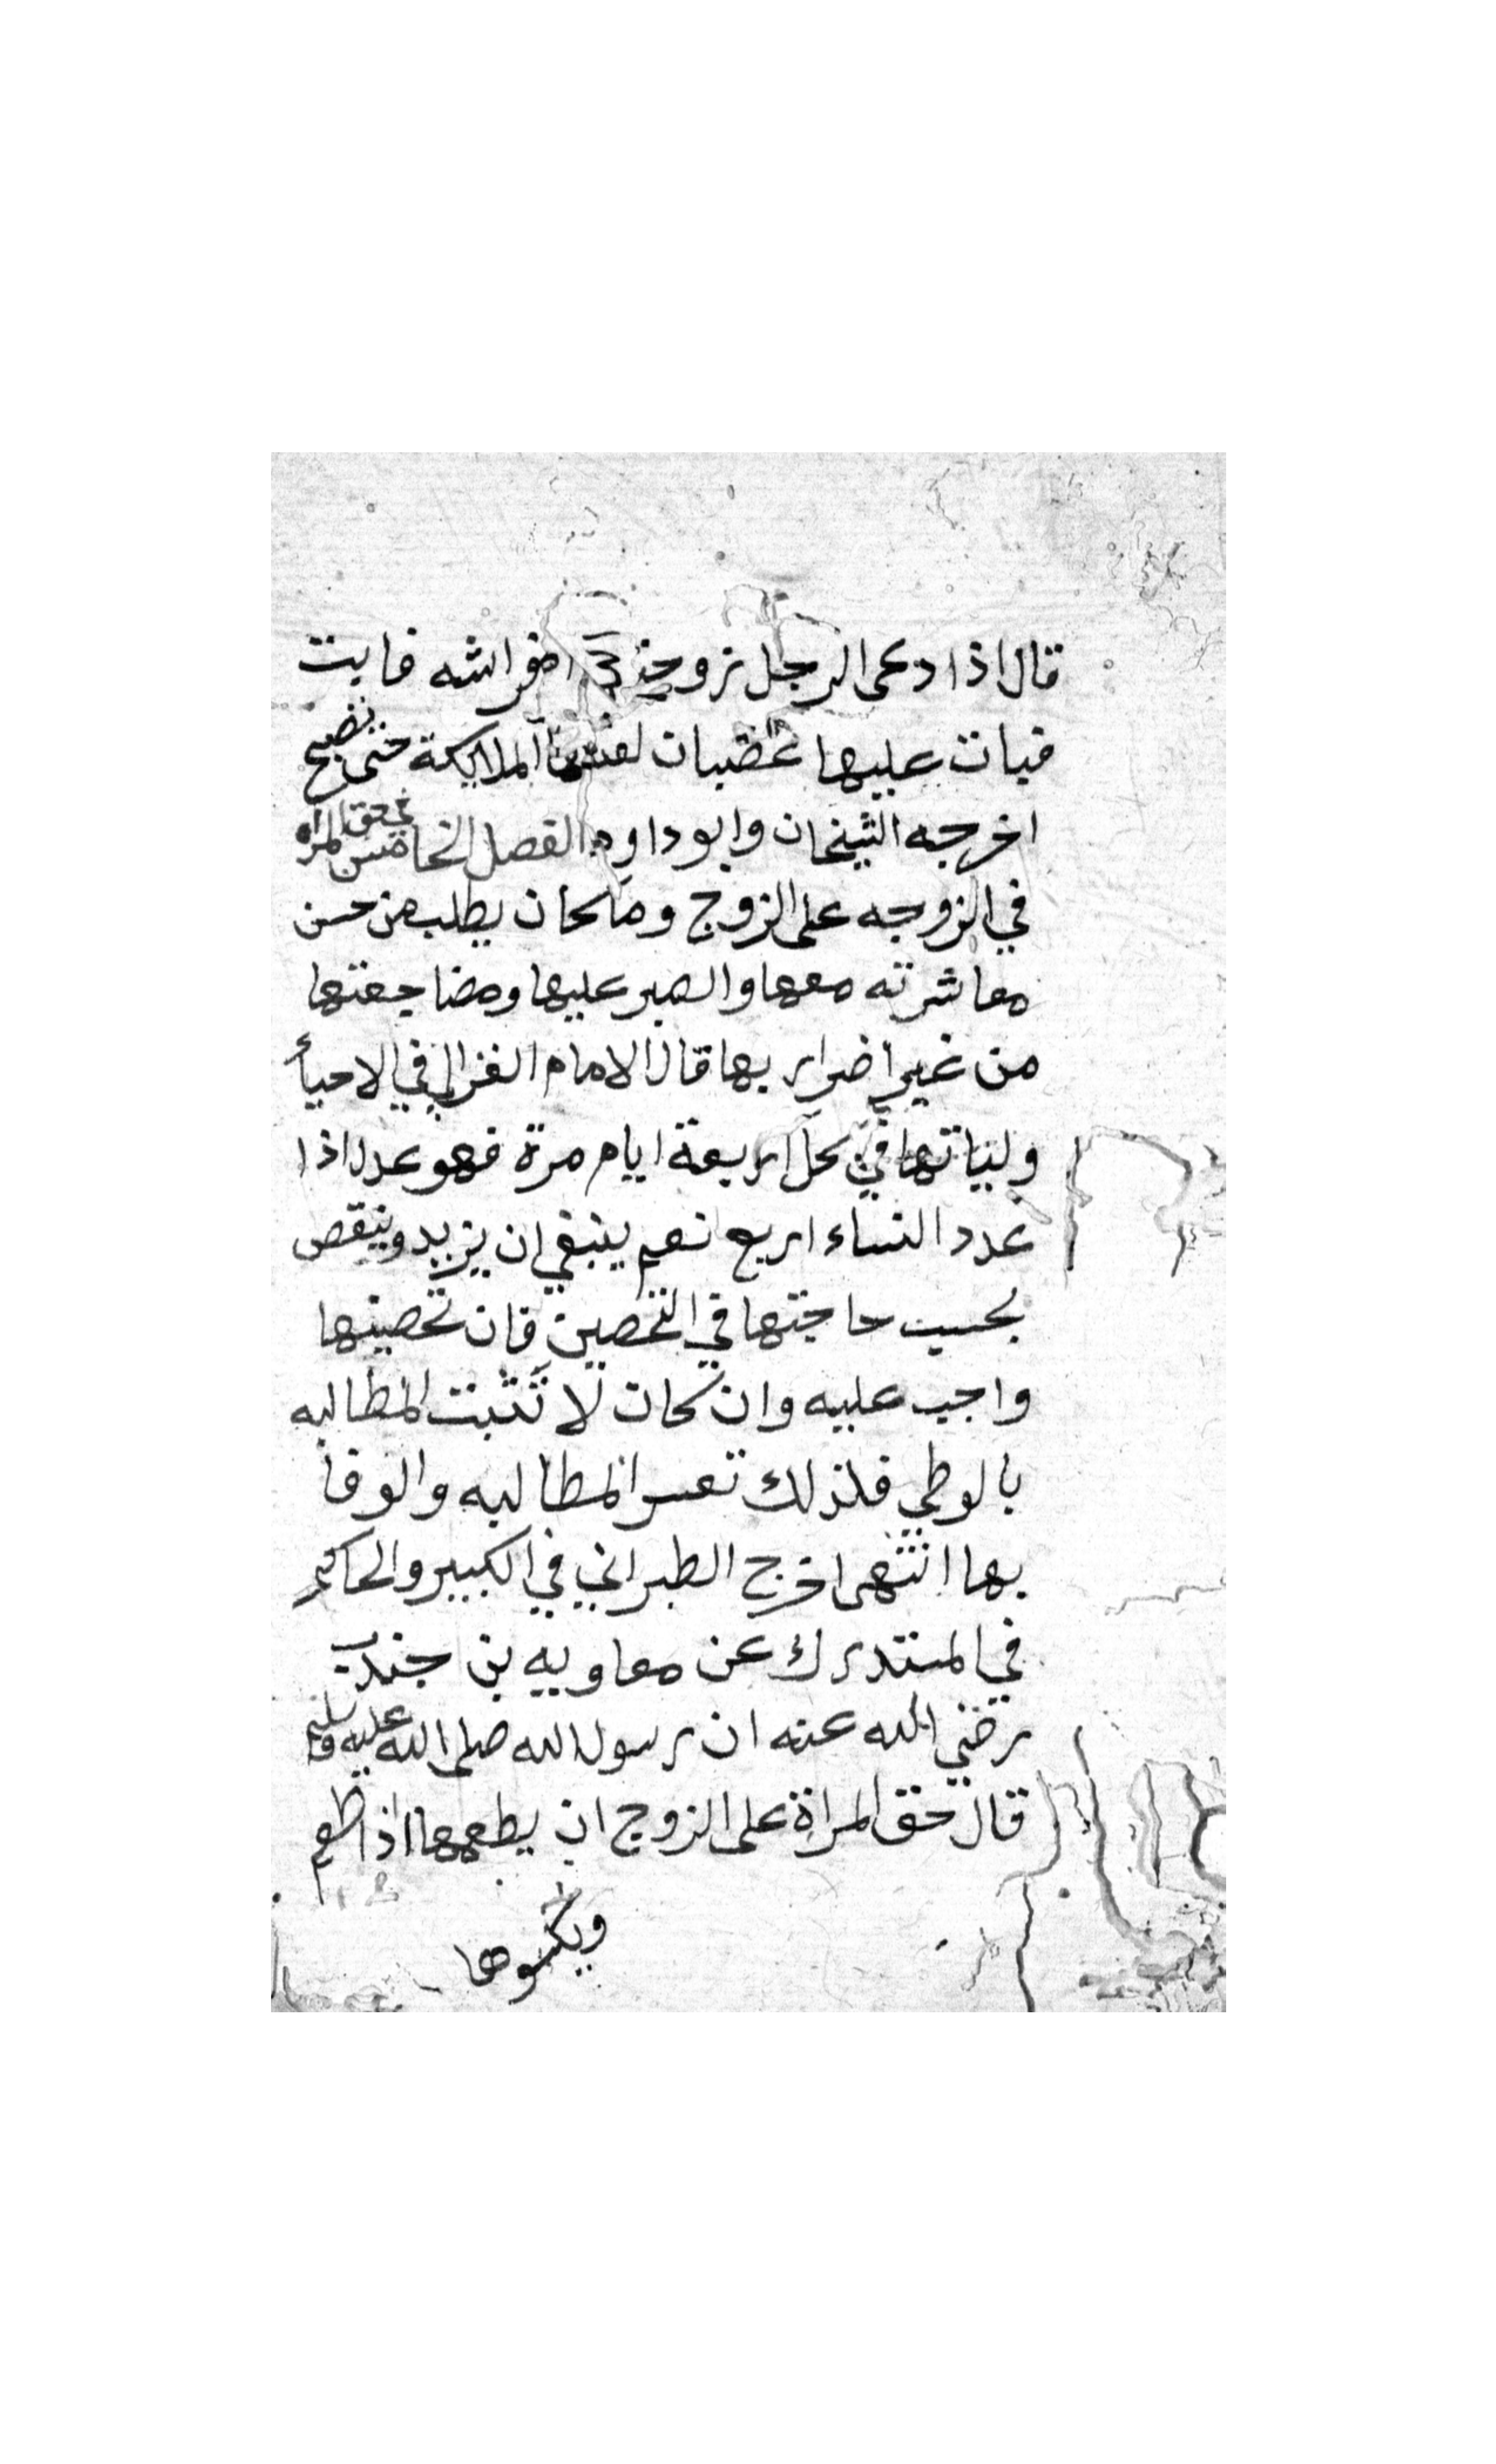 قال اذا دعى الرجل زوجته الى فراشه فابت
فبات عليها غضبان لعنتها الملايكة حتى تصبح
اخرجه الشيخان وابو داود الفصل الخامس في حق المراه
في الزوجه على الزوج وما كان يطلب من حسن
معاشرته معها والصبر عليها ومضاجعتها
من غير اضرار بها قال الامام الغزالي في الاحيأ
ولياتها في كل اربعة ايام مرة فهو عدل اذا
عدد النساء اربع نعم ينبغي ان يزيد وينقص
بحسب حاجتها في التحصين فان تحصينها
واجب عليه وان كان لا تثبت المطالبه
بالوطي فلذلك تعسر المطالبه والوفا
بها انتهى اخرج الطبراني في الكبير والحاكم
في المستدرك عن معاويه بن جندب
رضي الله عنه ان رسول الله صلى الله عليه وسلم
قال حق المراة على الزوج ان يطعمها اذا طعم
ويكسوها